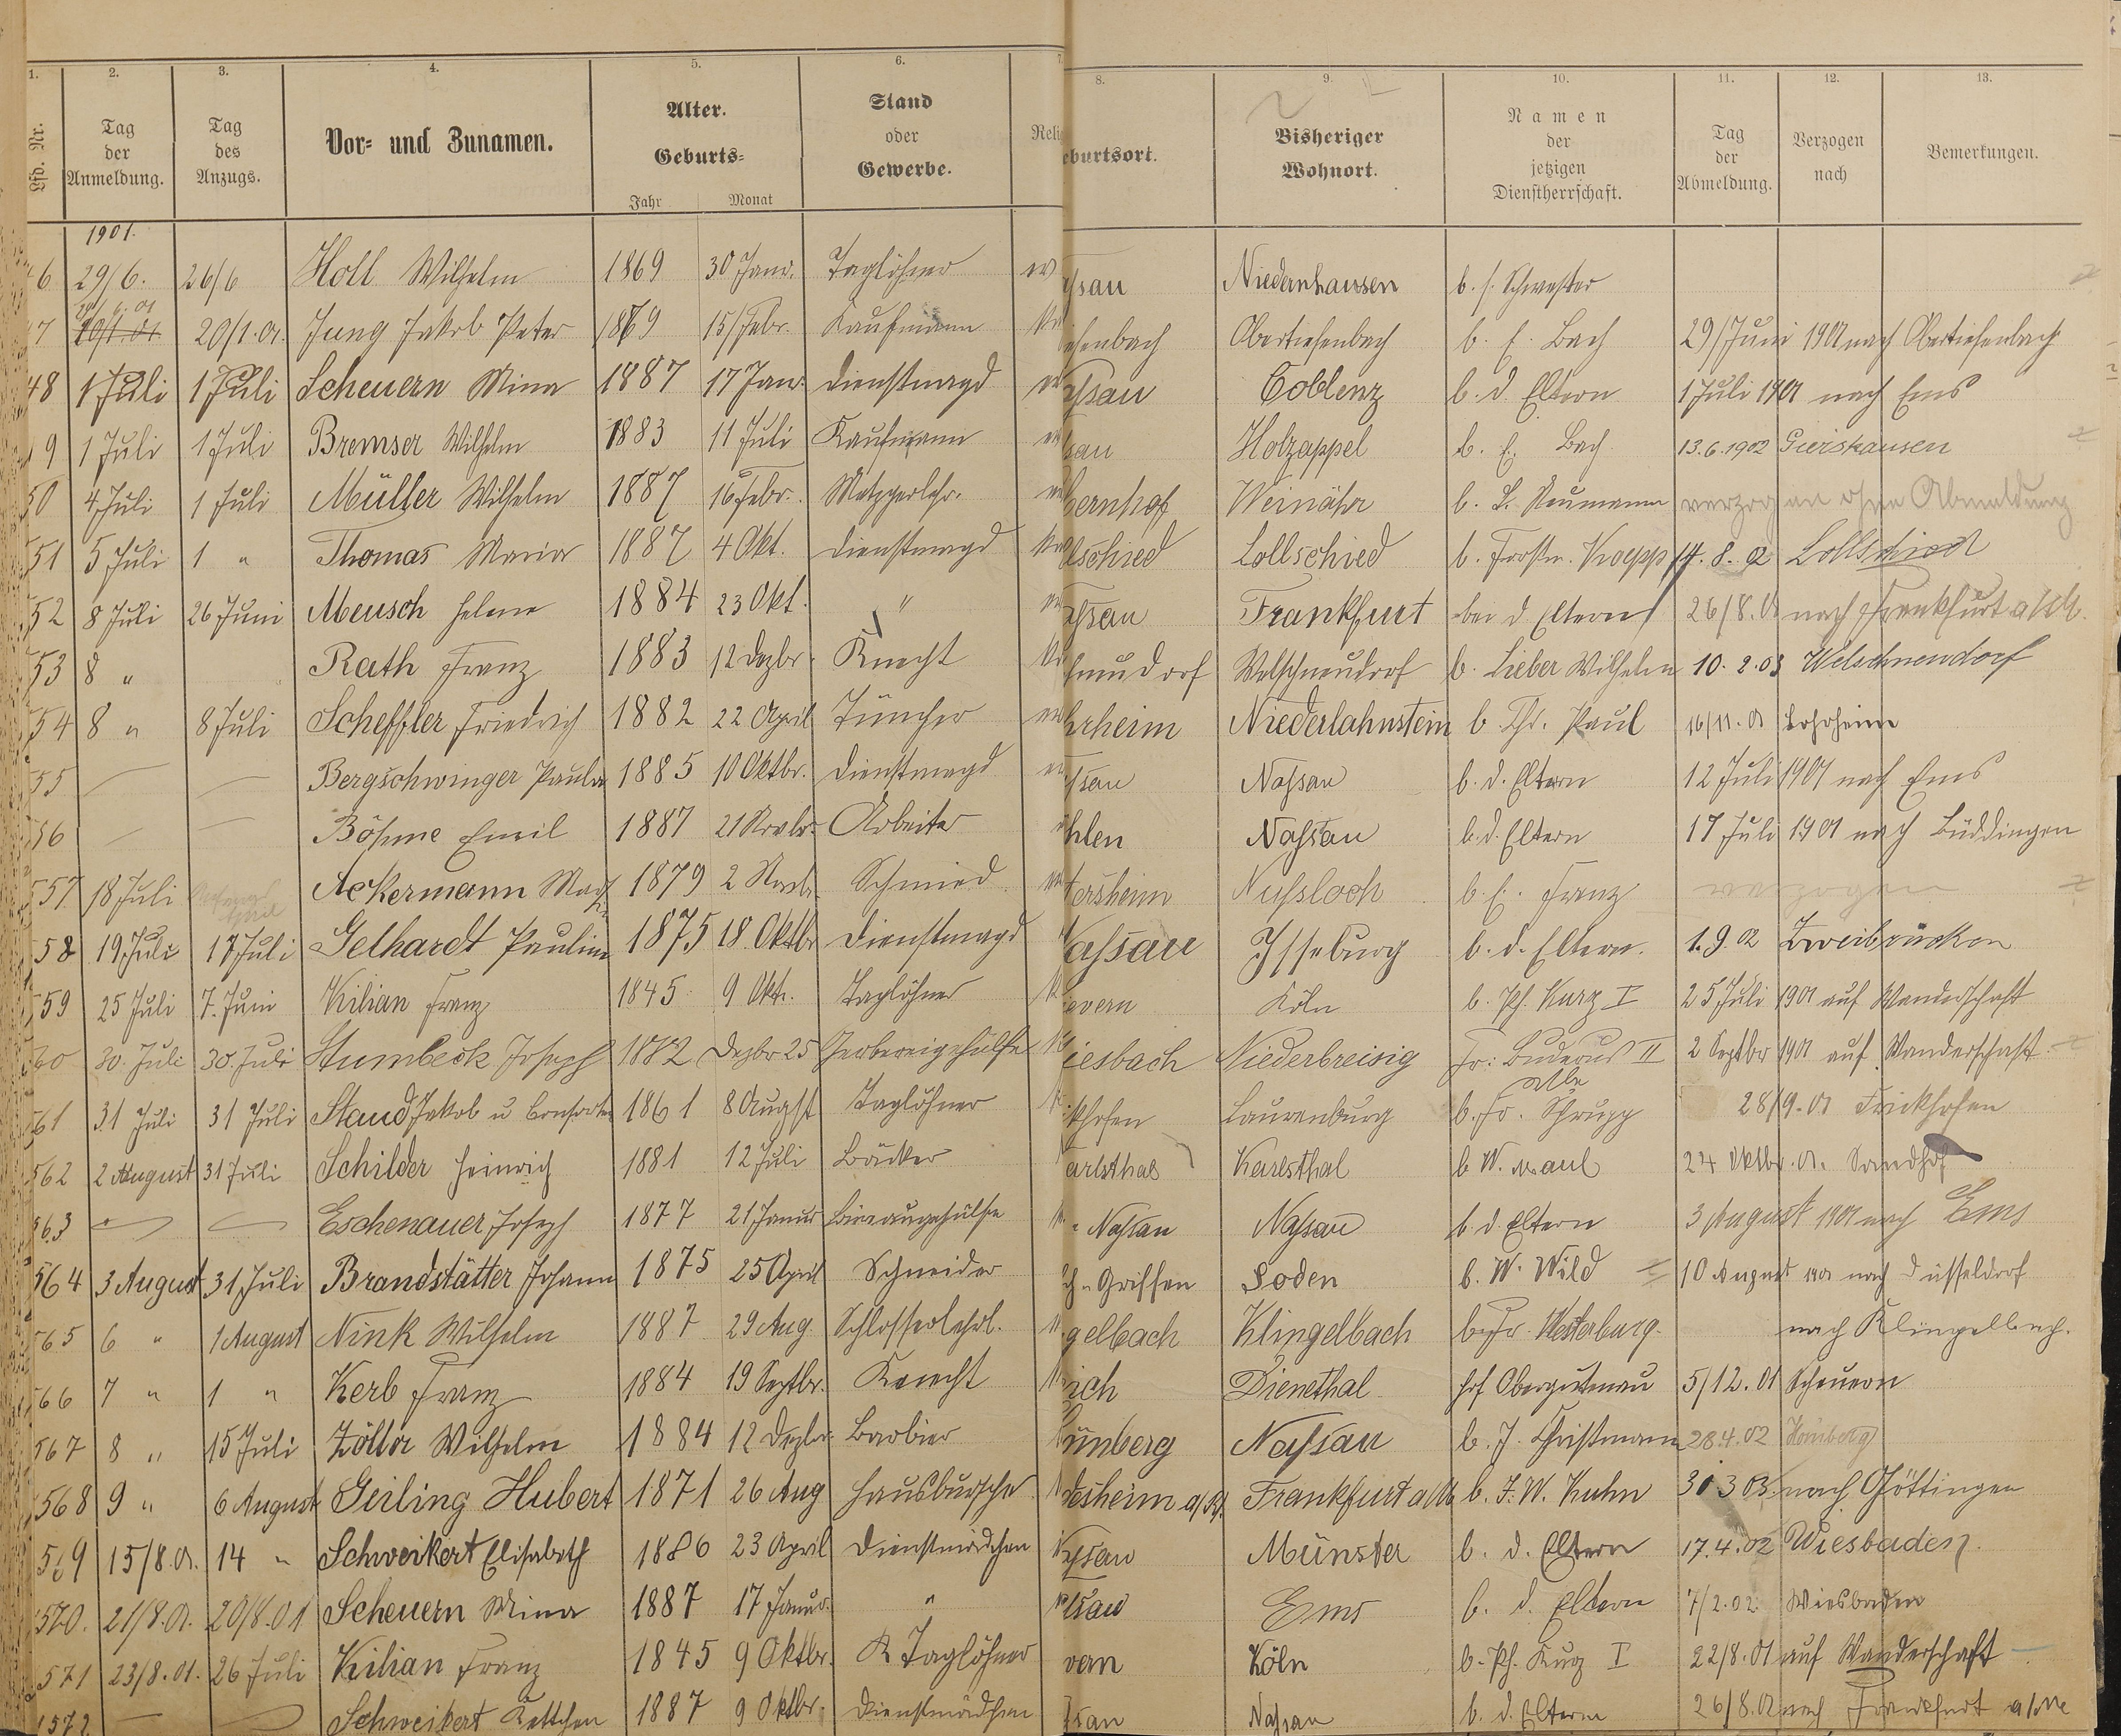 1. 2. 3. 4. 5. 6. 7 8. 9. 10. 11. 12. 13.
Lfd. Nr. Tag der Anmeldung. Tag des Anzugs. Vor- und Zunamen. Alter. Geburts- Jahr Monat Stand oder Gewerbe. Reli eburtsort. Bisheriger Wohnort. Namen der jetzigen Dienstherrschaft. Tag der Abmeldung. Verzogen nach Bemerkungen.
1901.
6 29/6. 26/6 Holl Wilhelm 1869 30 Janr. Taglöhner ev ssau Niedernhausen b. s. Schwester
7 20/1.01. Jung Jakob Peter 1869 15/Febr. Kaufmann efenbach Obertiefenbach b. E. Bach 29/Juni 1901 nach Obertiefenbach
48 1 Juli 1 Juli Scheuern Mina 1887 17 Jan. Dienstmagd ev assau Coblenz b. d. Eltern 1 Juli 1901 nach Ems
9 1 Juli 1 Juli Bremser Wilhelm 1883 11 Juli Kaufmann ev sau Holzappel b. E. Bach 13.6.1902
50 4 Juli 1 Juli Müller Wilhelm 1887 16 Febr. Metzgerlehr. ev bernhof Weinähr b. L. Neumann verzogen ohne Abmeldung
51 5 Juli 1 " Thomas Maria 1887 4 Okt. Dienstmagd lschied Lollschied b. Forstm. Koepp 14.8.02 Lollschied
52 8 Juli 26 Juni Meusch Helene 1884 23 Okt. " ev assau Frankfurt bei d Eltern 26/8.01 nach Frankfurt a/M.
53 8 " Rath Franz 1883 12 Dezbr. Knecht neudorf Welschneudorf b. Lieber Wilhelm 10.2.03 Welschneudorf
54 8 " 8 Juli Scheffler Friedrich 1882 22 April Tüncher ev hrheim Niederlahnstein b Chr. Paul 16/11.01 Lohrheim
55 Bergschwinger Paula 1885 10 Oktbr. Dienstmagd ev ssau Nassau b. d. Eltern 12 Juli 1901 nach Ems
56 Böhme Emil 1887 21 Novbr. Arbeiter hlen Nassau b. d. Eltern 17 Juli 1901 nach Büddingen
557 18 Juli Ackermann Max 1879 2 Novb. Schmied ev tersheim Nussloch b. E. Franz verzogen
58 19 Juli 17 Juli Gelhardt Pauline 1875 18. Oktbr Dienstmagd Nassau Isseburg b. d. Eltern. 1.9.02 Zweibrücken
559 25 Juli 7. Juni Kilian Franz 1845 9 Okt. Taglöhner evern Köln b. Ph. Kurz I 25 Juli 1901 auf Wanderschaft
60 30. Juli 30. Juli Stumbeck Joseph 1882 Dezbr 25 Gerbereigehülfe iesbach Niederbreisig Fr: Buderus II 2 Septbr 1901 auf Wanderschaft
561 31 Juli 31 Juli Staud Jakob u Consorten 1861 8 Augst Taglöhner khofen Laurenburg b. Fr. Schrupp 28/9.01 Frickhofen
562 2 August 31 Juli Schilder Heinrich 1881 12 Juli Bäcker arlsthal Karlsthal b W. Maul 24 Oktbr.01. Sandhof
563 Eschenauer Joseph 1877 21 Januar Büreaugehülfe Nassau Nassau b d. Eltern 3 August 1901 nach Ems
564 3 August 31 Juli Brandstätter Johann 1875 25 April Schneider ch-Griffen Soden b. W. Wild 10 August 1901 nach Düsseldorf
565 6 " 1 August Nink Wilhelm 1887 29 Aug Schlosserlehrl. gelbach Klingelbach b. Fr. Westerburg. nach Klingelbach.
566 7 " 1 " Kerb Franz 1884 19 Septbr. Knecht ich Dienethal Hof Obergutenau 5/12.01 Scheuern
567 8 " 15 Juli Zöller Wilhelm 1884 12 Dezbr. Barbier ünberg Nassau b. J. Christmann 28.4.02 Homberg
568 9 " 6 August Geiling Hubert 1871 26 Aug Hausbursche desheim a/Rh. Frankfurt a/M b. F. W. Kuhn 31 3 03. nach Göttingen
569 15/8.01. 14 " Schweikert Elisabeth 1886 23 April Dienstmädchen Nassau Münster b. d. Eltern 17.4.02 Wiesbaden.
570. 21/8.01. 20/8.01 Scheuern Mina 1887 17 Januar. " ssau Ems b. d. Eltern 7/2.02. Wiesbaden
571 23/8.01. 26 Juli Kilian Franz 1845 9 Oktbr. K Taglöhner vern Köln b. Ph. Kurz I 22/8.01 auf Wanderschaft
572 Schweikert Kettchen 1887 9 Oktbr. Dienstmädchen ssau Nassau b. d. Eltern 26/8.01 nach Frankfurt a/M